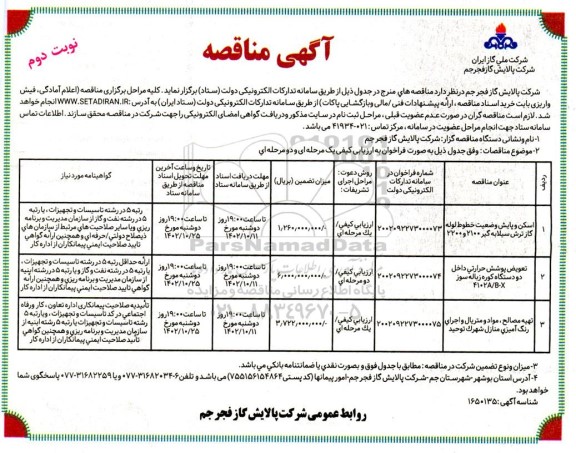 نوبت دوم
آگهی مناقصه
شرکت ملی گاز ایران
شرکت پالایش گاز فجر جم
شرکت پالایش گاز فجر جم در نظر دارد مناقصه های مندرج در جدول ذیل از طریق سامانه تدارکات الکترونیکی دولت (ستاد) برگزار نماید . کلیه مراحل برگزاری مناقصه (اعلام آمادگی، فیش
واریزی بابت خرید اسناد مناقصه ، ارائه پیشنهادات فنی/مالی و بازگشایی پاکات ) از طریق سامانه تدارکات الکترونیکی دولت (ستاد ایران) به آدرس: WWW.SETADIRAN.IR انجام خواهد
شد. لازم است مناقصه گران در صورت عدم عضویت قبلی ، مراحل ثبت نام در سایت مذکور و دریافت گواهی امضای الکترونیکی را جهت شرکت در مناقصه محقق سازند. اطلاعات تماس
سامانه ستاد جهت انجام مراحل عضویت در سامانه ، مرکز تماس: ۰۲۱-۴۱۹۳۴ می باشد.
۱-نام و نشانی دستگاه مناقصه گزار: شرکت پالایش گاز فجر جم
۲-موضوع مناقصات: وفق جدول ذیل به صورت فراخوان به ارزیابی کیفی یک مرحله ای و دو مرحله ای
ردیف
عنوان مناقصه
شماره فراخوان در سامانه تدارکات الکترونیکی دولت
روش دعوت : مراحل اجرای تشریفات:
میزان تضمین (بریال)
مهلت دریافت اسناد از طریق سامانه ستاد
تاریخ و ساعت آخرین مهلت تحویل اسناد مناقصه از طریق سامانه ستاد
گواهینامه مورد نیاز
۱
اسکن و پایش وضعیت خطوط لوله گاز ترش سیلابه گیر ۲۱۰۰ و ۲۲۰۰
۲۰۰۲۰۹۲۲۷۳۰۰۰۰۷۳
ارزیابی کیفی/ یک مرحله ای
۱,۲۶۰,۰۰۰,۰۰۰/-
تا ساعت ۱۹:۰۰ روز دوشنبه مورخ ۱۴۰۲/۱۰/۱۱
تا ساعت ۱۹:۰۰ روز دوشنبه مورخ ۱۴۰۲/۱۰/۲۵
رتبه ۵ در رشته تاسیسات و تجهیزات ، یا رتبه ۵ در رشته نفت و گاز از سازمان مدیریت و برنامه ریزی و یا سایر صلاحیت های مرتبط از سازمان های ذیصلاح دولتی/حرفه ای و همچنین ارائه تایید صلاحیت ایمنی پیمانکاران از اداره کار
۲
تعویض پوشش حرارتی داخل دو دستگاه کوره زباله سوز
۲۰۰۲۰۹۲۲۷۳۰۰۰۰۷۴
ارزیابی کیفی/ دو مرحله ای
تا ساعت ۱۹:۰۰ روز دوشنبه مورخ ۱۴۰۲/۱۰/۱۱
تا ساعت ۱۹:۰۰ روز دوشنبه مورخ ۱۴۰۲/۱۰/۲۵
ارائه حداقل رتبه ۵ در رشته تاسیسات و تجهیزات ، یا رتبه ۵ در رشته نفت و گاز و یا رتبه ۵ در رشته ابنیه از سازمان مدیریت و برنامه ریزی و همچنین ارائه گواهی تایید صلاحیت ایمنی پیمانکاران از اداره کار
۳
تهیه مصالح ، مواد و متریال و اجرای رنگ آمیزی منازل شهرک توحید
۲۰۰۲۰۹۲۲۷۳۰۰۰۰۷۵
ارزیابی کیفی/ یک مرحله ای
۳,۷۲۲,۰۰۰,۰۰۰/-
تا ساعت ۱۹:۰۰ روز دوشنبه مورخ ۱۴۰۲/۱۰/۱۱
تا ساعت ۱۹:۰۰ روز دوشنبه مورخ ۱۴۰۲/۱۰/۲۵
تأییدیه صلاحیت پیمانکاری اداره تعاون ، کار و رفاه اجتماعی در کد تاسیسات و تجهیزات ، و یا رتبه ۵ در رشته تاسیسات و تجهیزات یا رتبه ۵ رشته ابنیه از سازمان مدیریت و برنامه ریزی و همچنین ارائه گواهی تایید صلاحیت ایمنی پیمانکاران از اداره کار
۳-میزان و نوع تضمین شرکت در مناقصه: مطابق با جدول فوق و بصورت نقدی یا ضمانتنامه بانکی می باشد.
۴-آدرس استان بوشهر-شهرستان جم-شرکت پالایش گاز فجر جم-امور پیمانها (کد پستی ۷۵۵۱۵۶۱۵۴۸۶۴) می باشد و تلفن ۶-۳۱۶۸۲۰۳۴-۰۷۷ و یا ۳۱۶۸۲۲۵۹-۰۷۷ پاسخگوی شما
خواهد بود.
شناسه آگهی: ۱۶۵۰۱۳۵
روابط عمومی شرکت پالایش گاز فجر جم
ParsNamadData
پایگاه اطلاع رسانی مناقصه و مزایده